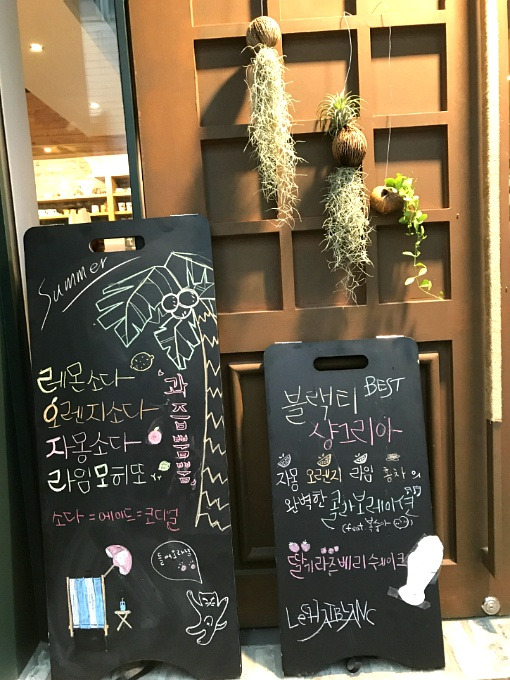 Summer
레몬소다
오렌지소다
자몽소다
라임모히또
과즙뿜뿜
소다=에이드=코디얼
들어오라냥
블랙티 BEST
샹그리아
자몽 오렌지 라임 홍차의
완벽한 콜라보레이션
(feat. 복숭아)
딸기라즈베리 쉐이크
LeSHATBLANC